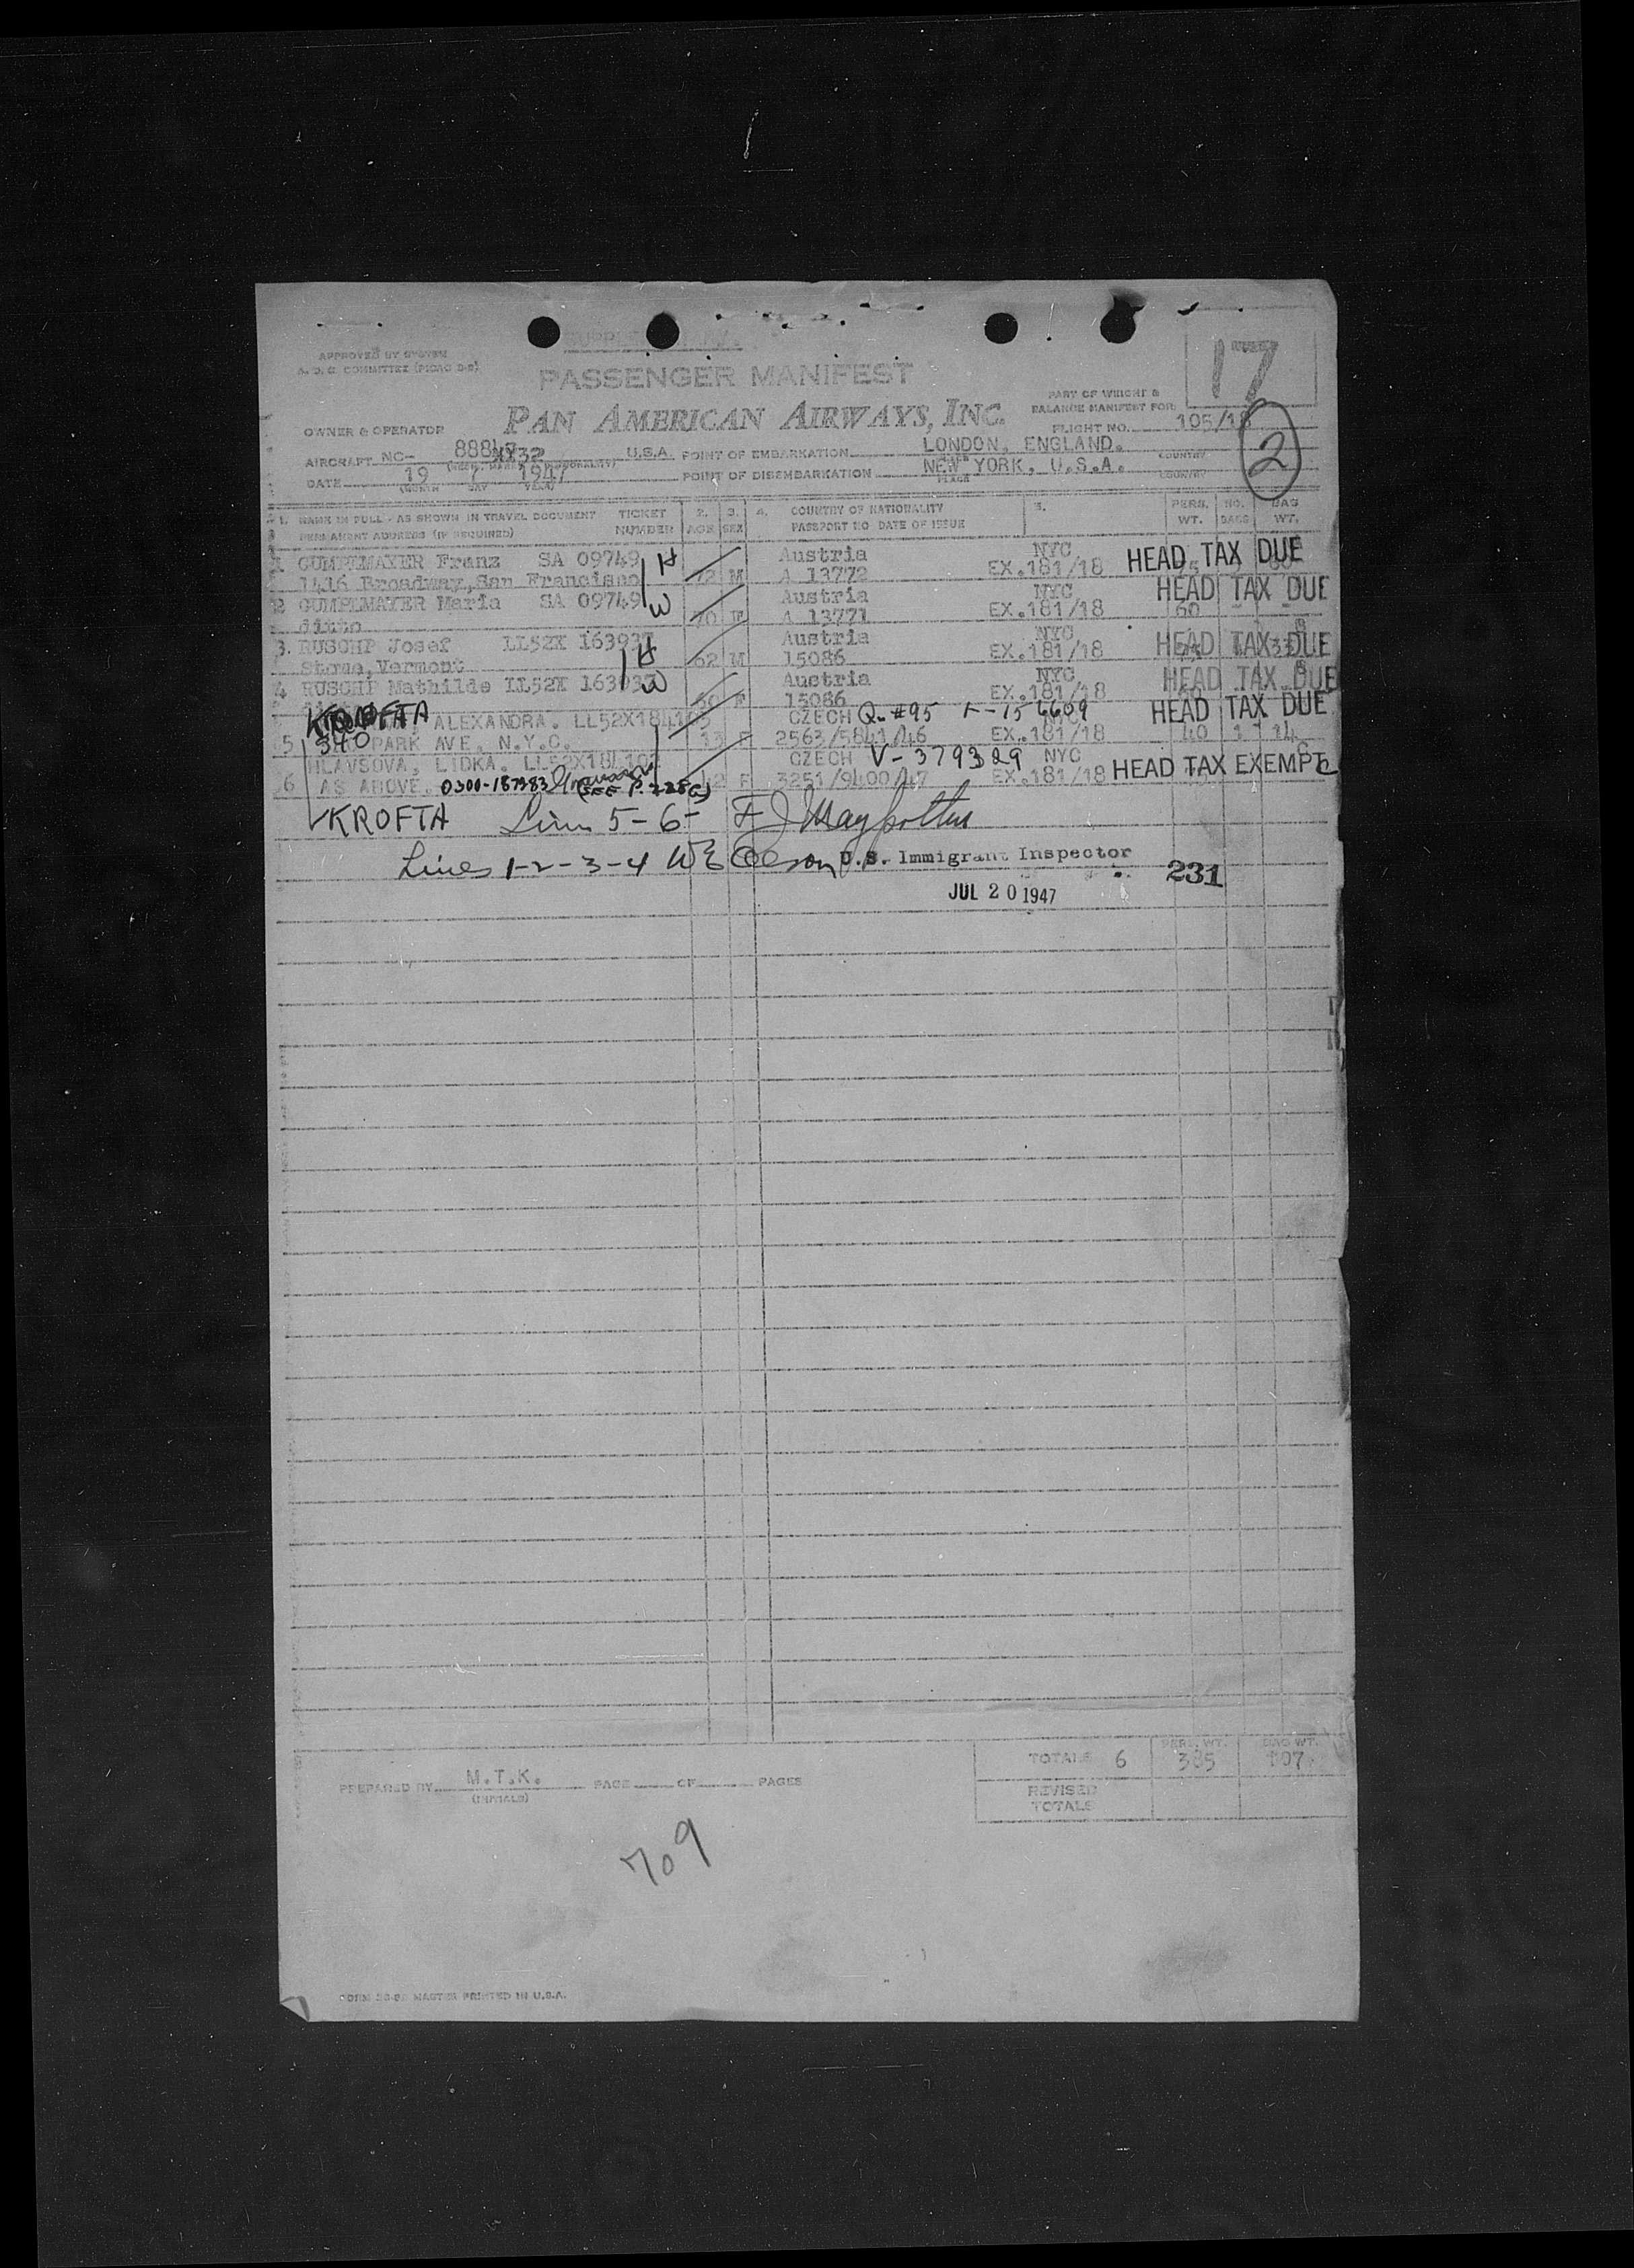 APPROVED BY SYSTEM
PASSENGER MANIFEST
17
PART OF WEIGHT &
BALANCE MANIFEST FOR:
PAN AMERICAN AIRWAYS, INC.
OWNER & OPERATOR
FLIGHT NO. 105/18
2
AIRCRAFT NC- U.S.A. POINT OF EMBARKATION LONDON, ENGLAND. COUNTRY
DATE 19 7 1947 POINT OF DISEMBARKATION NEW YORK, U.S.A. COUNTRY
(MONTH DAY YEAR) PLACE
1. NAME IN FULL - AS SHOWN IN TRAVEL DOCUMENT TICKET 2. 3. 4. COUNTRY OF NATIONALITY 5. PERS. NO. BAG
PERMANENT ADDRESS (IF REQUIRED) NUMBER AGE SEX PASSPORT NO DATE OF ISSUE WT. BAGS WT.
1 GUMPELMAYER Franz SA 09749 H Austria NYC HEAD TAX DUE
1416 Broadway, San Francisco 72 M A 13772 EX.181/18
2 GUMPELMAYER Maria SA 09749 W Austria NYC HEAD TAX DUE
ditto 70 F A 13771 EX.181/18 60
3. RUSCHP Josef LL52X 163937 H Austria NYC HEAD TAX DUE
Stowe, Vermont 62 M 15086 EX.181/18
4 RUSCHP Mathilde LL52X 163937 W Austria NYC HEAD TAX DUE
F 15086 EX.181/18
KROFTA ALEXANDRA. CZECH Q. #95 HEAD TAX DUE
5 340 PARK AVE, N.Y.C. 13 F 2563/5841/46 EX.181/18 40 1 14
HLAVSOVA, LIDKA. CZECH V-379329 NYC
6 AS ABOVE. 0300-187383 42 F 3251/9400/47 EX.181/18 HEAD TAX EXEMPT
KROFTA 5-6-
Lines 1-2-3-4 U.S. Immigrant Inspector
231
JUL 20 1947
TOTALS 6 PERS. WT. 385 BAG WT. 107
PREPARED BY M.T.K. PAGE OF PAGES
(INITIALS)
REVISED
TOTALS
709
MASTER PRINTED IN U.S.A.